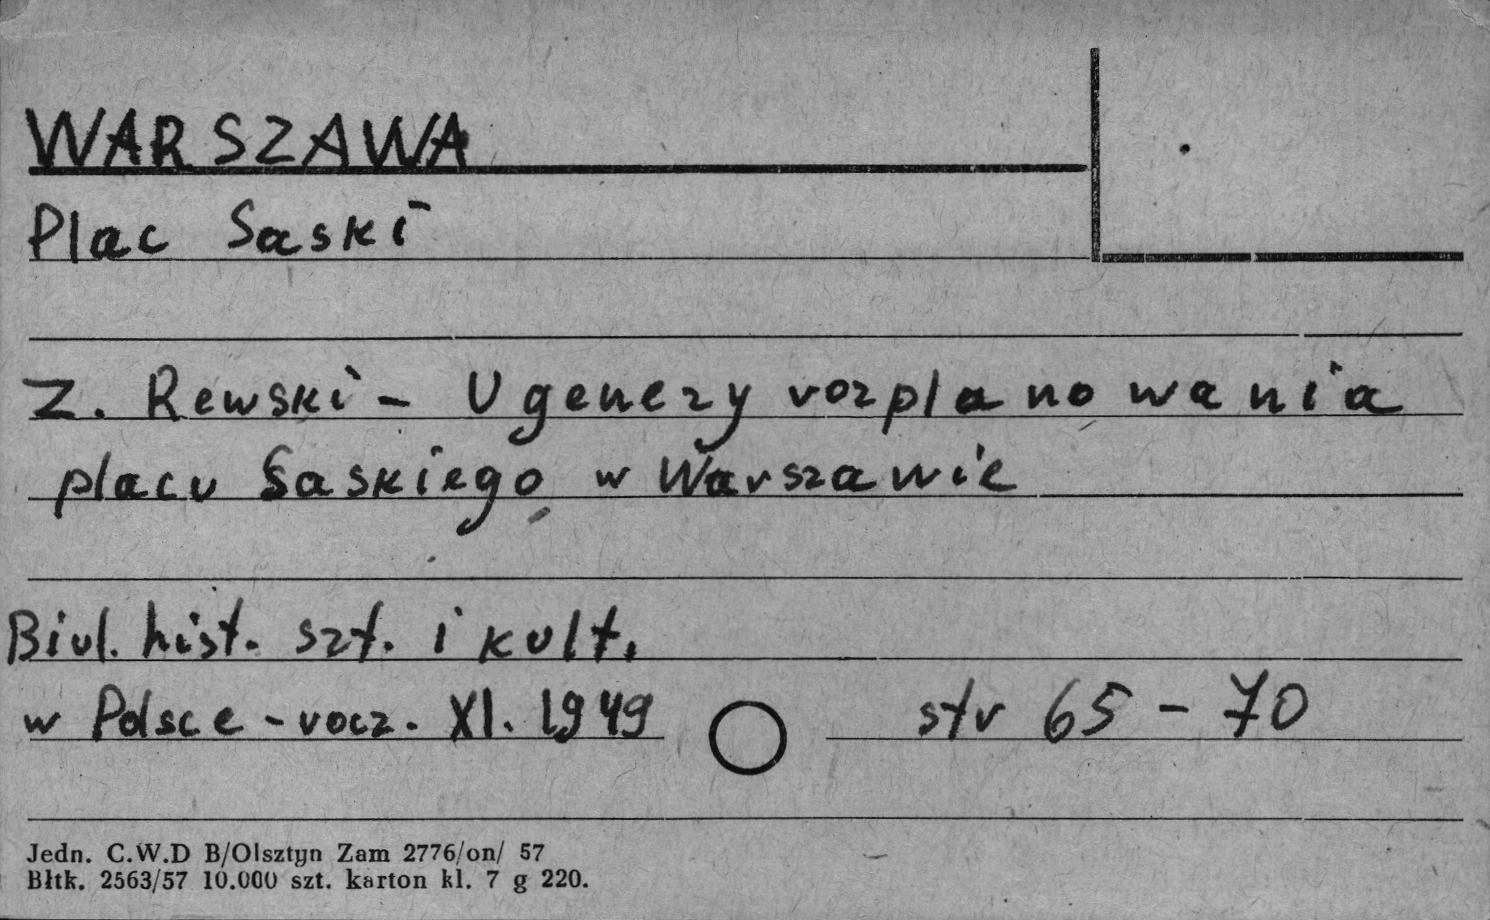 WARSZAWA
Plac Saski
Z. Rewski - U genezy rozplanowania
placu Saskiego w Warszawie
Biul. hist. szt. i kult.
w Polsce - rocz. XI. 1949 str 65 - 70
Jedn. C.W.D B/Olsztyn Zam 2776/on/ 57
Błtk. 2563/57 10.000 szt. karton kl. 7 g 220.